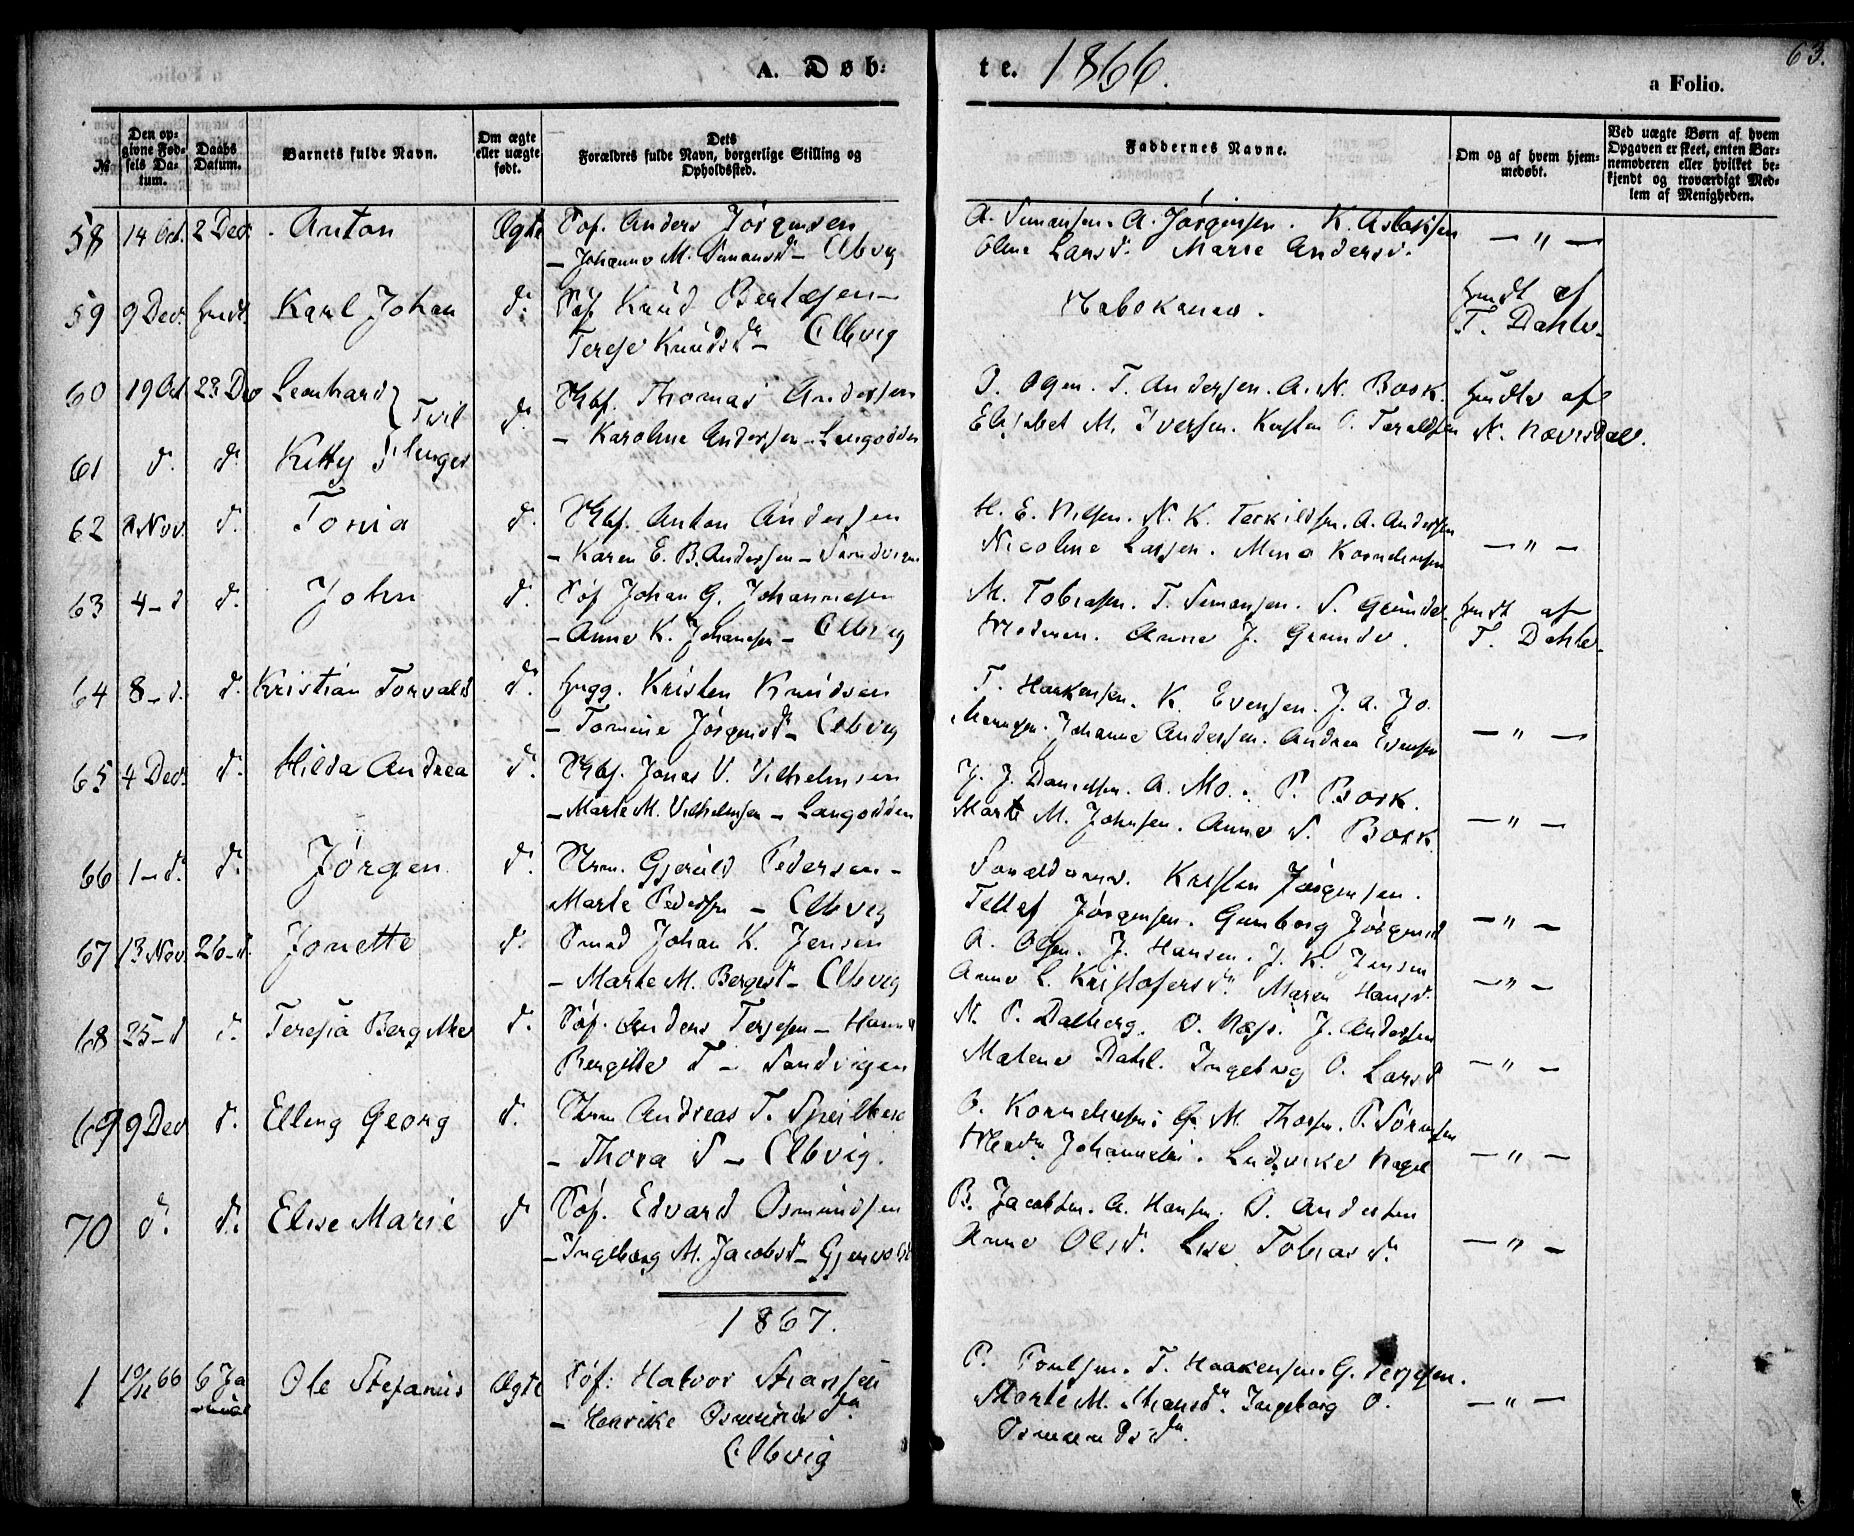 A. Døb-
te. 1866.
63.
a Folio.
№
Den op-
givne Fød-
sels Da-
tum.
Daabs
Datum.
Barnets fulde Navn.
Om ægte
eller uægte
født.
Dets
Forældres fulde Navn, borgerlige Stilling og
Opholdssted.
Faddernes Navne.
Om og af hvem hjem-
medøbt.
Ved uægte Børn af hvem
Opgaven er skeet, enten Bar-
nemoderen eller hvilket be-
kjendt og troværdigt Med-
lem af Menigheden.
58 14 Oct. 2 Dec. Anton Ægte Søf. Anders Jørgensen
– Johanne M. Simonsd – Elbvig
A. Simonsen. A. Jørgensen. K. Aslaksen
Oline Larsd. Marie Andersd. – " –
59 9 Dec. hmdt. Karl Johan d. Søf. Knud Bertelsen –
Terese Knudsd – Elbvig
Nabokoner. hmdt af
T. Dahle.
60 19 Oct 23 Dec Leonhard Tvil d. Thomas Andersen
– Karoline Andersen – Langodden
O. Olsen. T. Andersen. A. N. Book.
Elisabet M. Iversen. T. Taraldsen hmdte af
61 d. d. Kitty linger
62 2 Nov. d. Tonia d. Anton Andersen
– Karen E. B. Andersen – Sandvigen
H. E. Nilsen. N. K. Terkildsen. A. Andersen
Nicoline Larsen. Mina Korneliussen – " –
63 4 – d d. John d. Søf Johan G. Johannesen
– Anne K. Johannesen – Elbvig
M. Tobiasen. T. Simonsen. S. Grunde
Anne J. Grunde. hmdt af
T. Dahle.
64 8 – d. d. Kristian Torvald d. hugg. Kristen Knudsen
– Tomine Jørgensd – Elbvig
T. Haakensen. K. Evensen. J. A. Jo.
Johanne Andersen. Andrea Evensen – " –
65 4 Dec. d. Hilda Andrea d. Jonas V. Vilhelmsen
– Marte M. Vilhelmsen – Langodden
J. J. Danielsen. A. Mo. P. Book.
Marte M. Johnsen. Anne S. Book – " –
66 1 – d. d. Jørgen d. Strm. Gjeruld Pedersen –
Marte Pedersen – Elbvig
Forældrene. Kristen Jørgensen.
Tellef Jørgensen. Gunborg Jørgensd – " –
67 13 Nov. 26 – d. Jonette d. Smed Johan K. Jensen
– Marte M. Bergest – Elbvig
A. Olsen. J. Hansen. J. K. Jensen
Anne L. Kristofersd. Maren Hansd. – " –
68 25 – d d. Teresia Bergitte d. Søf. Anders Terjesen – Hanne
Bergitte T – Sandvigen
N. P. Dalberg. O. Næss. J. Andersen
Malene Dahl. Ingeborg O. Larsd – " –
69 9 Dec d. Elling Georg d. Strm Andreas T. Speilberg
– Thora S – Elbvig.
O. Korneliussen. G. M. Thorsen. P. Sørensen
Johannesen. Ludvike Nagel – " –
70 d. d. Elise Marie d Søf. Edvard Osmundsen
– Ingeborg M. Jacobsd –
B. Jacobsen. A. Hansen. O. Andersen
Anne Olsd. Lise Tobiasd. – " –
1867.
1 10/12 66 6 Ja
nuar Ole Stefanus Ægte Søf: Halvor Stiansen
– Henrike Osmundsd.
Elbvig
P. Poulsen. T. Haakensen. G. Terjesen.
Marte M. Stiansd. Ingeborg O.
Osmundsd. – " –